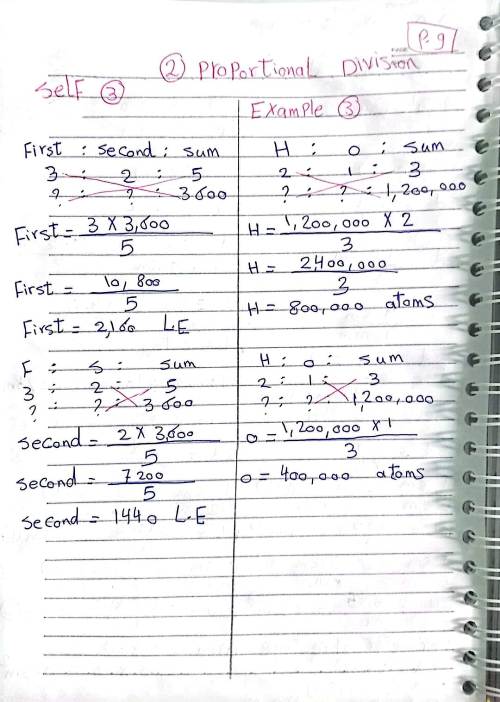 P.9
② Proportional Division
Self ③
First : second : sum
3 : 2 : 5
? : ? : 3600
First = 3 X 3,600 / 5
First = 10,800 / 5
First = 2,160 L.E
F : S : sum
3 : 2 : 5
? : ? : 3600
second = 2 X 3,600 / 5
second = 7200 / 5
second = 1440 L.E
Example ③
H : O : sum
2 : 1 : 3
? : ? : 1,200,000
H = 1,200,000 X 2 / 3
H = 2,400,000 / 3
H = 800,000 atoms
H : O : sum
2 : 1 : 3
? : ? : 1,200,000
O = 1,200,000 X 1 / 3
O = 400,000 atoms